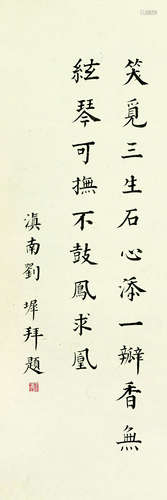 笑覓三生石心添一瓣香無
絃琴可撫不鼓鳳求凰
滇南劉墀拜題